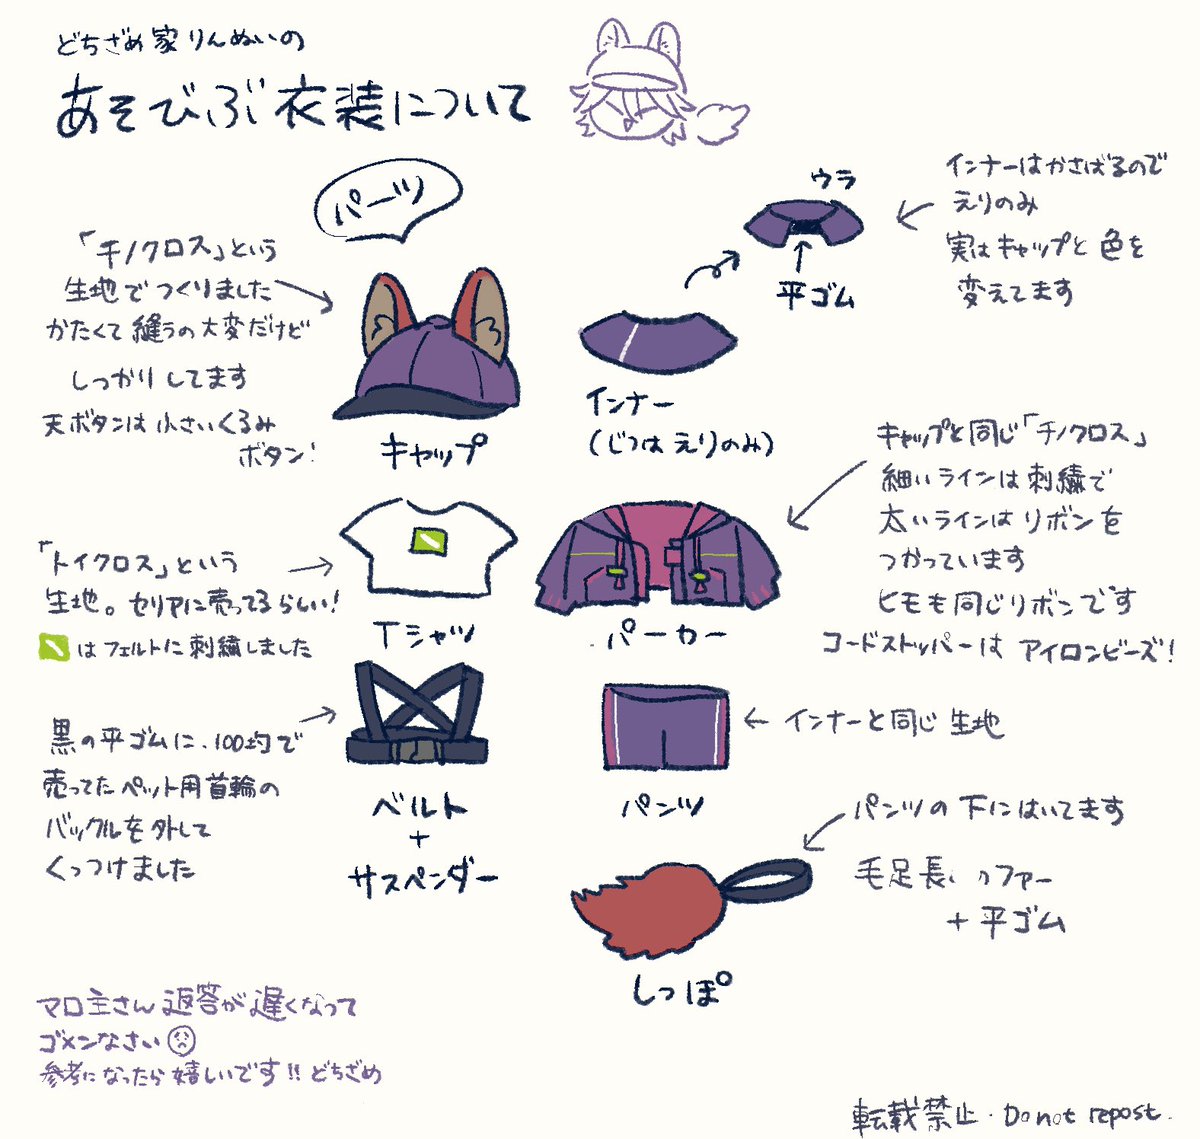 どちざめ家りんぬいの
あそびぶ衣装について
パーツ
「チノクロス」という
生地でつくりました
かたくて縫うの大変だけど
しっかりしてます
天ボタンは小さいくるみ
ボタン!
キャップ
ウラ
平ゴム
インナーはかさばるので
えりのみ
実はキャップと色を
変えてます
インナー
(じつはえりのみ)
「トイクロス」という
生地。セリアに売ってるらしい!
はフェルトに刺繍しました
Tシャツ
キャップと同じ「チノクロス」
細いラインは刺繍で
太いラインはリボンを
つかっています
ヒモも同じリボンです
コードストッパーはアイロンビーズ!
パーカー
黒の平ゴムに、100均で
売ってたペット用首輪の
バックルを外して
くっつけました
ベルト
+
サスペンダー
インナーと同じ生地
パンツ
パンツの下にはいてます
毛足長いファー
+平ゴム
しっぽ
マロ主さん返答が遅くなって
ゴメンなさい
参考になったら嬉しいです!!どちざめ
転載禁止・Do not repost.